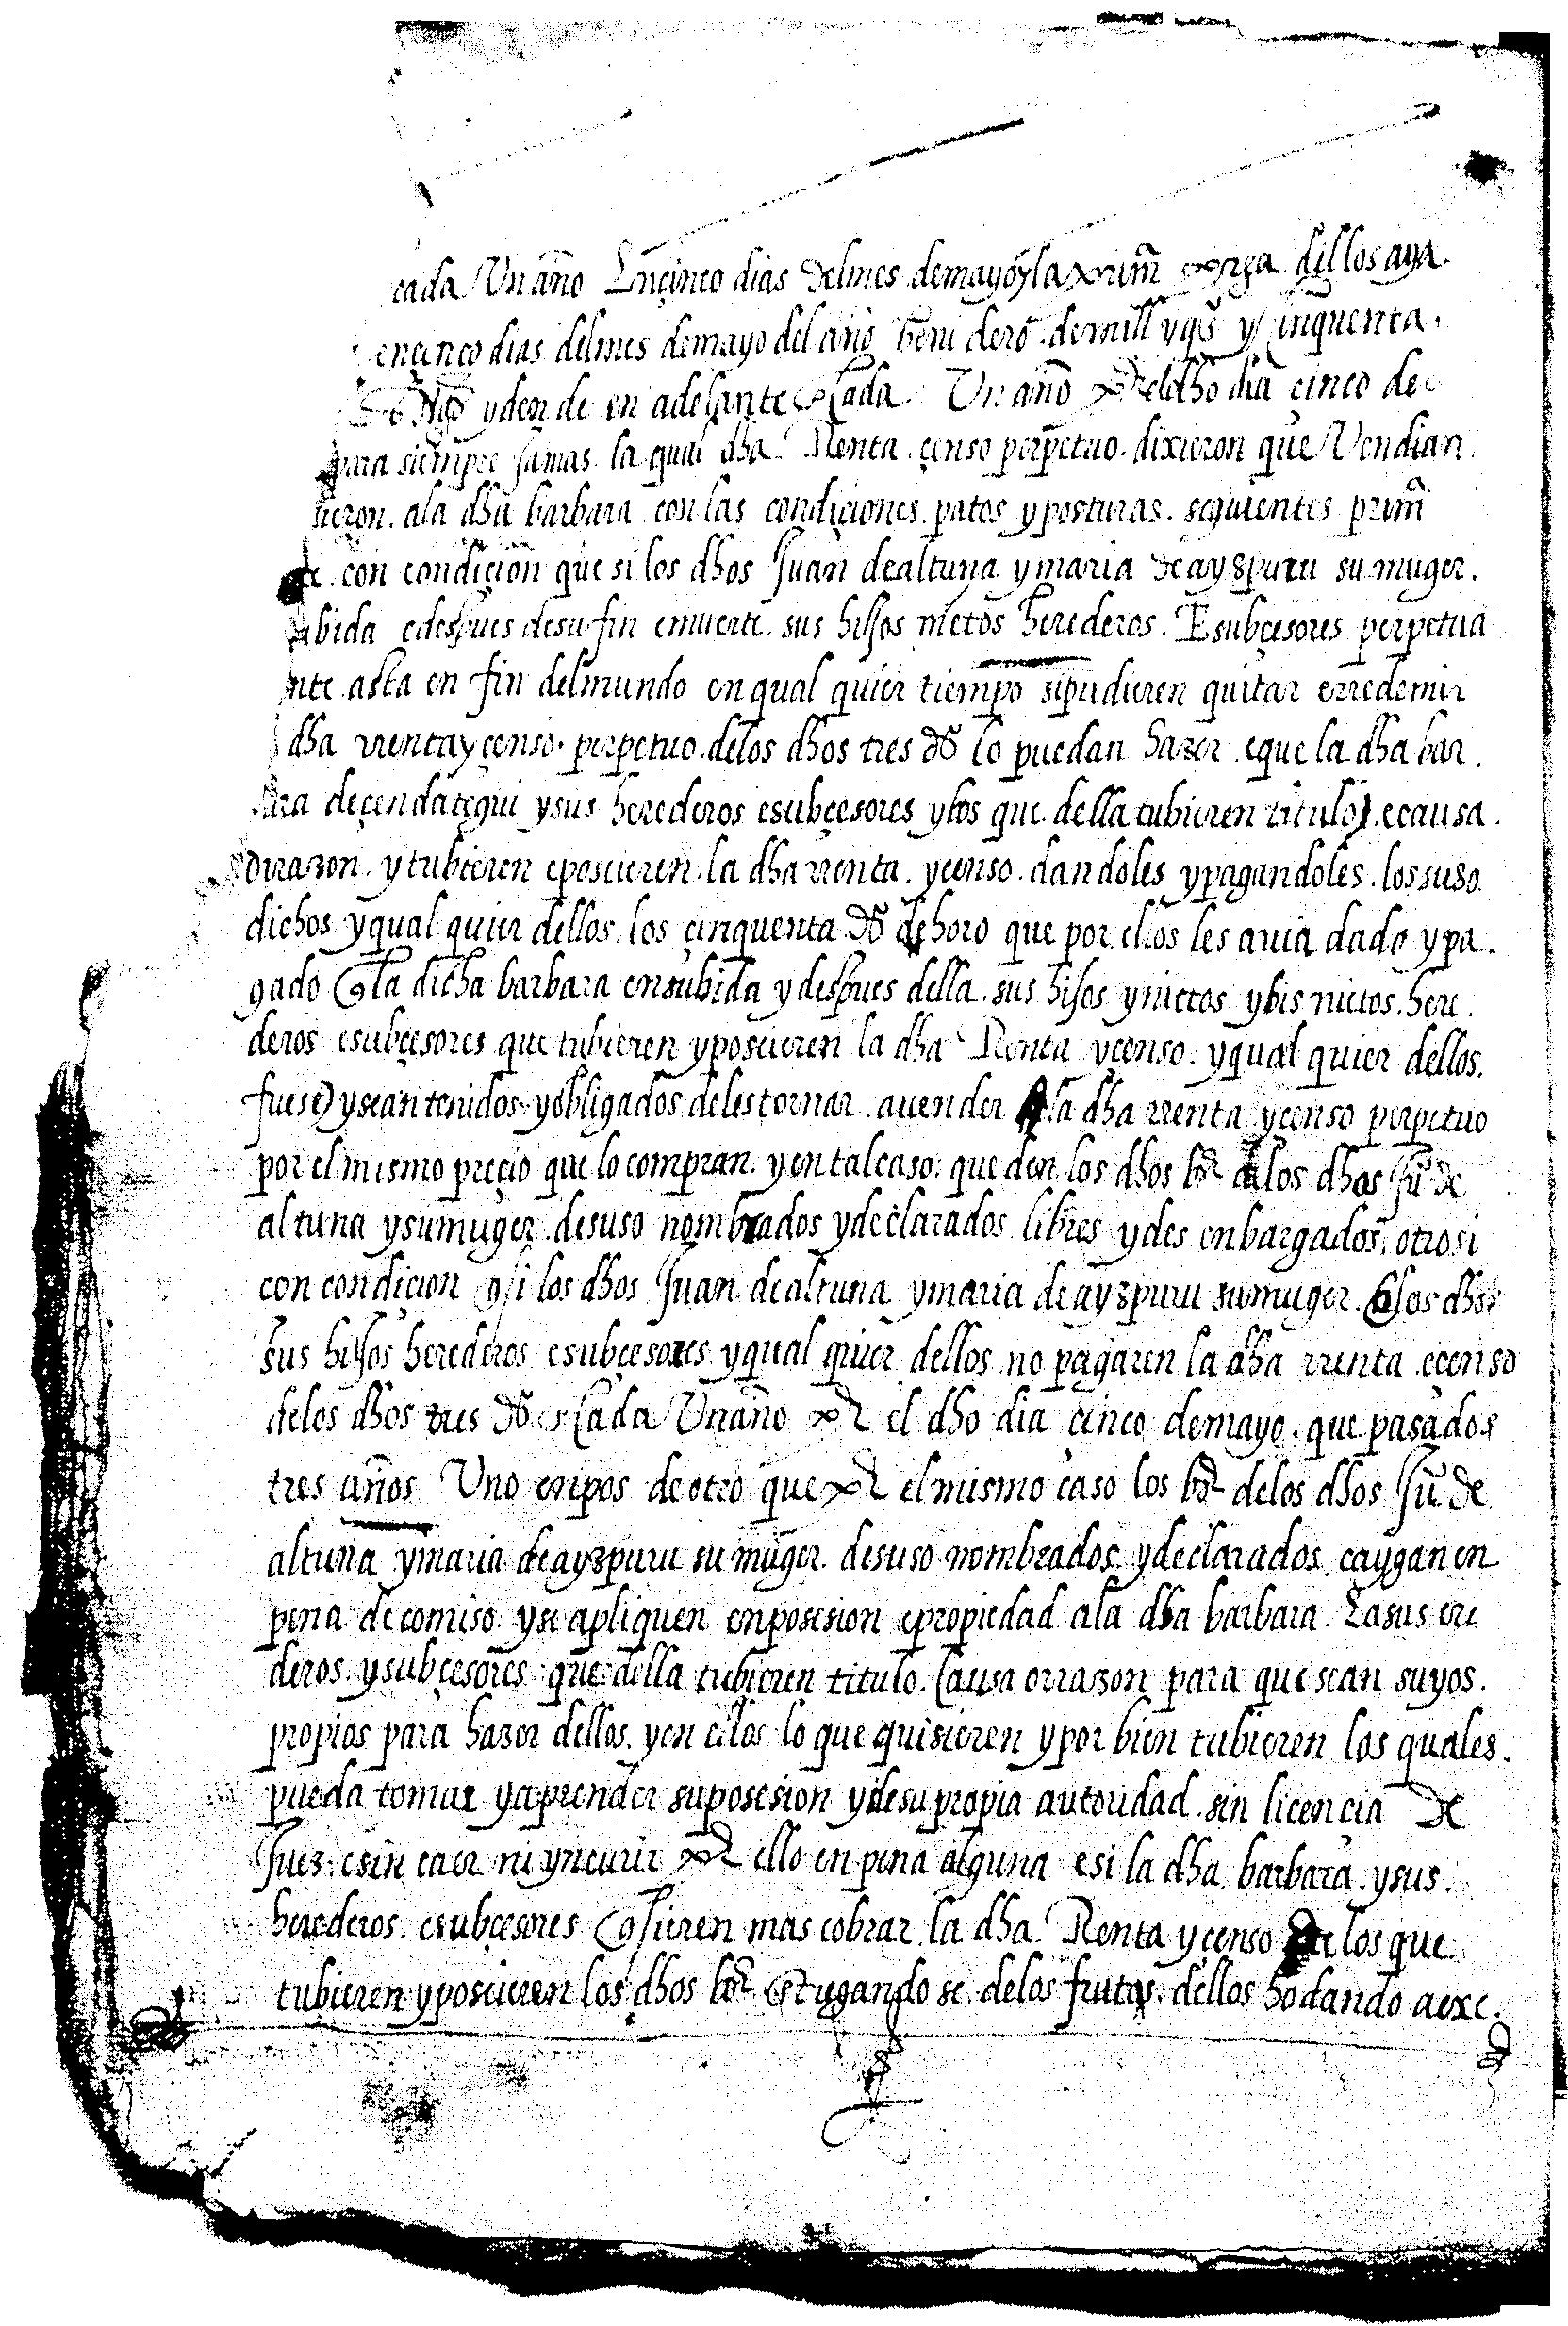 cada Un año En çinco dias del mes de mayo y la prima paga dellos aya.
en çinco dias del mes de mayo del año benidero. de mill y qos y çinquenta.
y dende en adelante cada Un año por el dho dia çinco de
para siempre jamas. la qual dha Renta çenso perpetuo. dixieron que Vendian
dieron. a la dha barbara con las condiçiones. patos y posturas. seguientes prima
te. con condiçion que si los dhos Juan de altuna y maria de ayzpuru su muger.
abida e despues de su fin e muerte. sus hijos nietos herederos. E subçesores perpetua
nte asta en fin del mundo en qual quier tiempo si pudieren quitar e rredemir
dha rrenta y çenso. perpetuo. de los dhos tres ds lo puedan hazer. e que la dha bar.
bara de çendategui y sus herederos e subçesores y los que. della tubieren titulo. e causa.
o rrazon. y tubieren e poseieren. la dha rrenta. y censo. dandoles y pagandoles. los suso
dichos y qual quier dellos. los çinquenta ds de horo que por ellos les avia dado y pa.
gado e la dicha barbara en su bida y despues della. sus hijos y nietos y bis nietos. here.
deros e subçesores que tubieren y poseieren la dha Renta y çenso. y qual quier dellos.
fuese y sean tenidos y obligados de les tornar a vender a la dha rrenta y çenso perpetuo
por el mismo preçio que lo compran. y en tal caso. queden los dhos bs de los dhos Ju de
altuna y su muger. de suso nombrados y declarados libres y des enbargados. otrosi
con condiçion q si los dhos Juan de altuna y maria de ayzpuru su muger. e los dhos
sus hijos herederos e subçesores y qual quier dellos no pagaren la dha rrenta. e censo
de los dhos tres ds cada Un año por el dho dia çinco de mayo. que pasados
tres años Uno en pos de otro que por el mismo caso los bs de los dhos Ju de
altuna y maria de ayzpuru su muger. de suso nombrados y declarados caygan en
pena de comiso. y se apliquen en posesion e propiedad a la dha barbara. E a sus ere
deros. y subçesores que della tubieren titulo. Causa o rrazon para que sean suyos.
propios para hazer dellos. y en ellos lo que quisieren y por bien tubieren los quales.
pueda tomar y aprender su posesion y de su propia autoridad. sin licencia de
Juez. e sin caer ni yncurir por ello en pena alguna e si la dha barbara. y sus.
herederos. e subçesores qisieren mas cobrar. la dha Renta y çenso de los que
tubieren y poseieren los dhos bs entregando se de los frutos. dellos ho dando a exe.